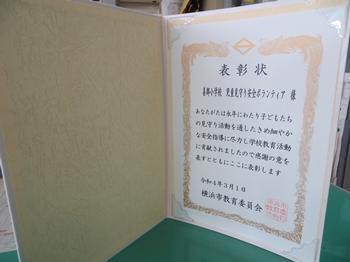 表彰状
小学校 児童見守り安全ボランティア 様
あなたがたは永年にわたり子どもたち
の見守り活動を通したきめ細やか
な安全指導に尽力し学校教育活動
に貢献されましたので感謝の意を
表すとともにここに表彰します
令和4年3月1日
横浜市教育委員会